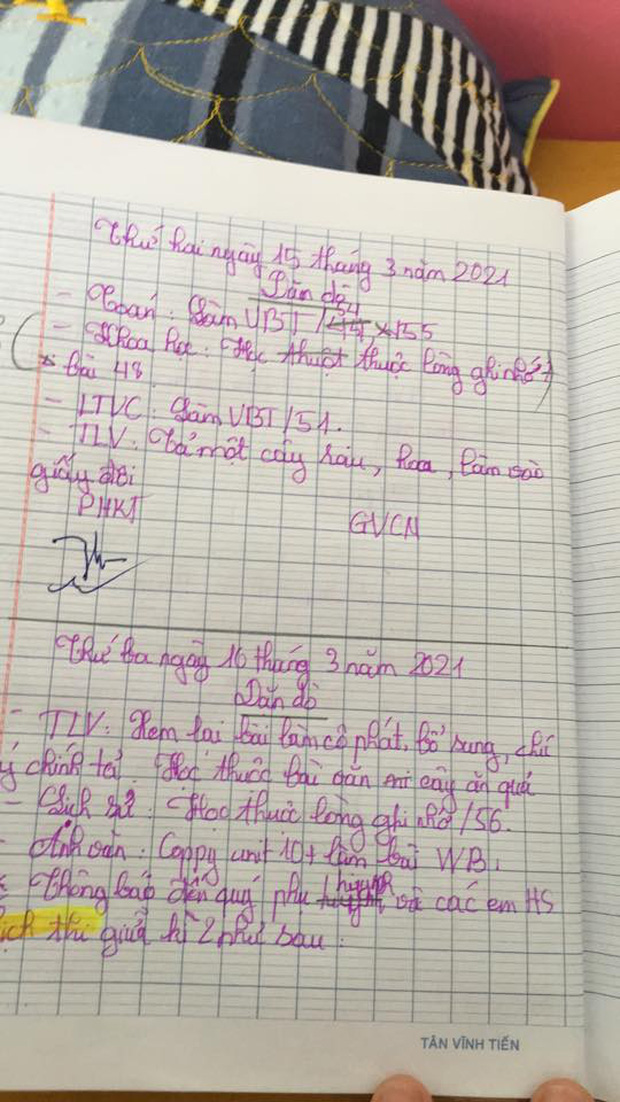 Thứ hai ngày 15 tháng 3 năm 2021
Dặn dò
- Toán: Làm VBT / 54 x 155
- Khoa học: Học thuột thuộc lòng ghi nhớ
bài 48
- LTVC: Làm VBT / 51.
- TLV: Tả một cây rau, hoa, làm vào
giấy đôi
PHKT GVCN
Thứ ba ngày 16 tháng 3 năm 2021
Dặn dò
- TLV: Xem lại bài làm cô phát, bổ sung, chú
ý chính tả. Học thuộc bài cây ăn quả
- Lịch sử: Học thuộc lòng ghi nhớ /56.
- Anh văn: Coppy unit 10 + làm bài WB.
Thông báo đến quý phụ huynh và các em HS
lịch thi giữa kì 2 như sau:
TÂN VĨNH TIẾN